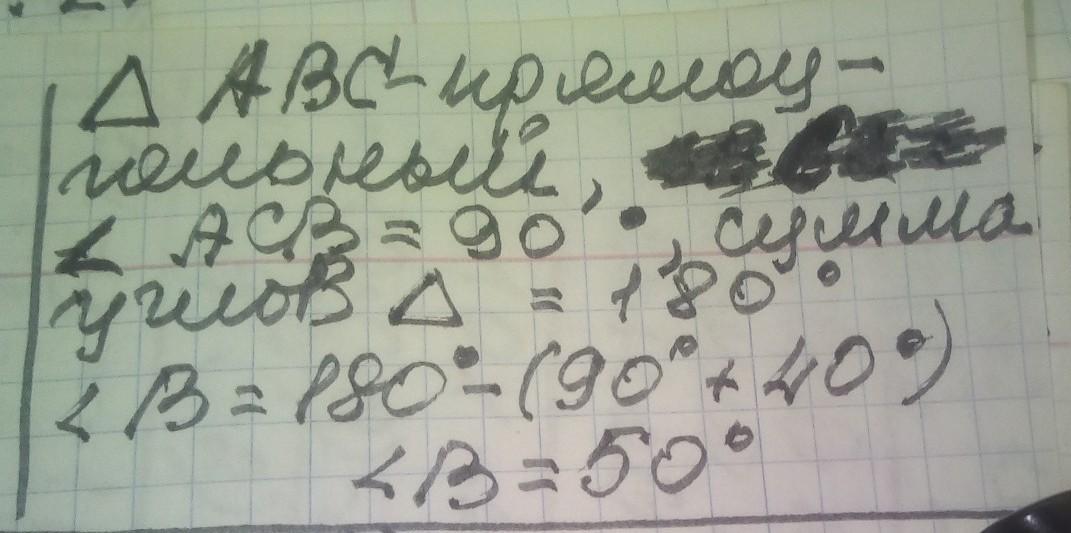 △ ABC-прямоу-
гольный,
∠ ACB = 90°, сумма
углов △ = 180°
∠B = 180°-(90°+40°)
∠B = 50°